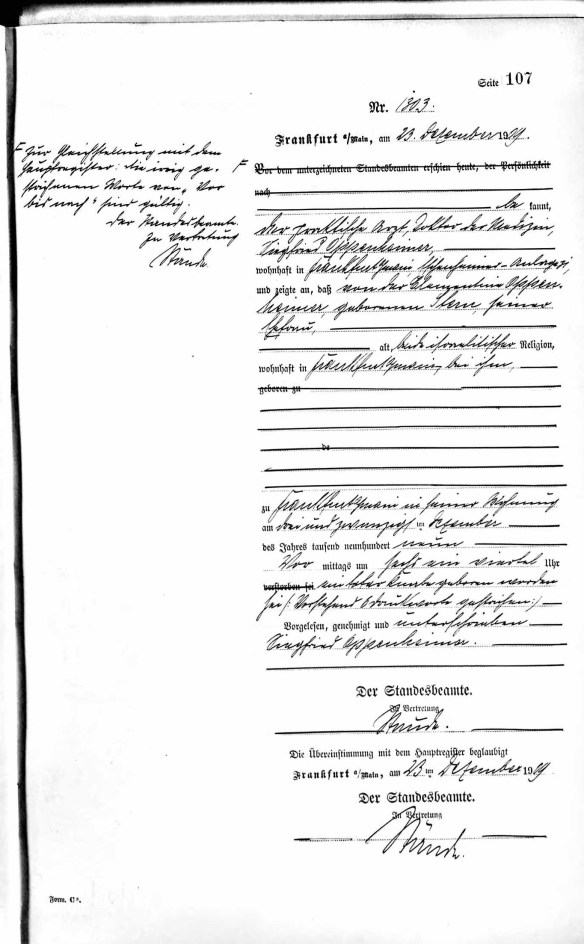 Seite 107
Nr. 1303.
Frankfurt a/Main, am 23. Dezember 1909.
F Zur Gleichstellung mit dem
Hauptregister: die irrig ge-
strichenen Worte von "Vor
bis nach" sind gültig.
Der Standesbeamte.
In Vertretung
Staude.
F Vor dem unterzeichneten Standesbeamten erschien heute, der Persönlichkeit
nach
be kannt,
der praktische Arzt, Doktor der Medizin,
Siegfried Oppenheimer,
wohnhaft in Frankfurt/Main,
und zeigte an, daß von der Clementine Oppen-
heimer, geborenen Stern, seiner
Ehefrau,
alt, beide israelitischer Religion,
wohnhaft in Frankfurt/Main, bei ihm,
geboren zu
de
zu Frankfurt/Main in seiner Wohnung
am drei und zwanzigsten Dezember
des Jahres tausend neunhundert neun
Vor mittags um sechs ein viertel Uhr
verstorben sei ein toter Knabe geboren worden
sei /: Vorstehend 6 Druckworte gestrichen :/
Vorgelesen, genehmigt und unterschrieben
Siegfried Oppenheimer.
Der Standesbeamte.
In Vertretung
Staude.
Die Übereinstimmung mit dem Hauptregister beglaubigt
Frankfurt a/Main, am 23 ten Dezember 1909
Der Standesbeamte.
In Vertretung
Staude.
Form. C*.